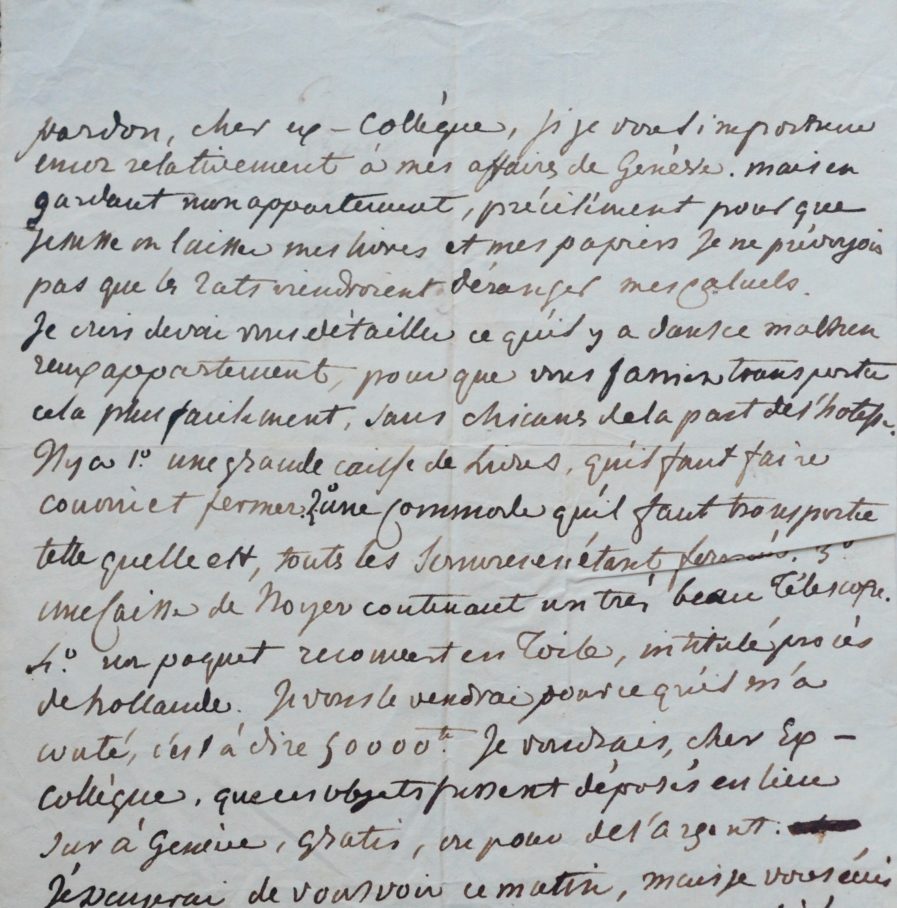 pardon, cher ex-Collègue, si je vous importune
encor relativement à mes affaires de Genève. mais en
gardant mon appartement, précisément pour que
on laisse mes livres et mes papiers Je ne prévoyois
pas que les rats viendroient déranger mes calculs.
Je crois devoir vous détailler ce qu'il y a dans ce malheu
reux appartement, pour que vous fassiez transporter
cela plus facilement, sans chicane de la part de l'hotesse.
Il y a 1.º une grande caisse de Livres, qu'il faut faire
couvrir et fermer. 2º une Commode qu'il faut transporter
telle quelle est, touts les Serrures en étant fermés. 3º
une Caisse de Noyer contenant un très beau Télescope.
4.º un paquet recouvert en Toile, intitulé procès
de hollande. Je vous le vendrai pour ce qu'il m'a
couté, c'est à dire 50000.lt Je voudrais, cher Ex-
Collègue, que ces objets fussent déposés en lieu
sur à Genève, gratis, ou pour de l'argent.
de vous voir ce matin, mais je vous